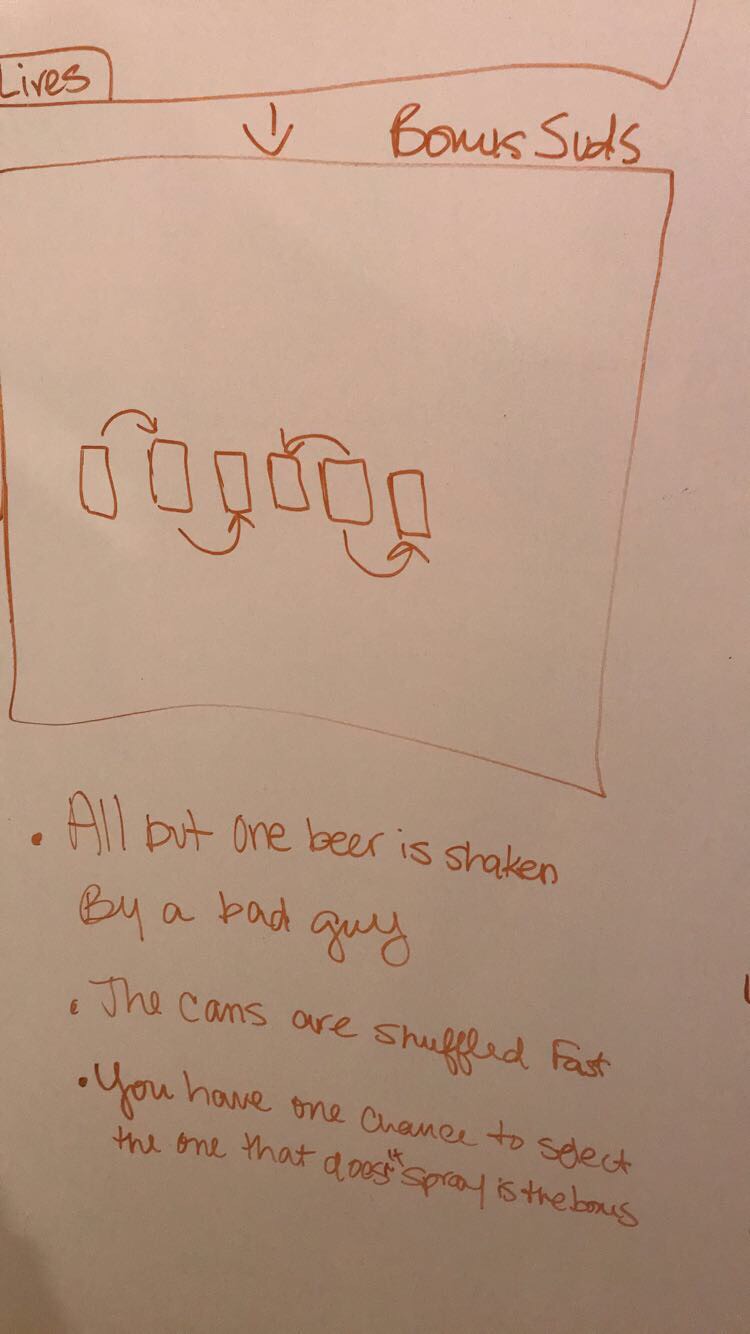 Lives
Bonus Suds
• All but one beer is shaken
By a bad guy
• The cans are shuffled Fast
• You have one chance to select
the one that does"t spray is the bonus